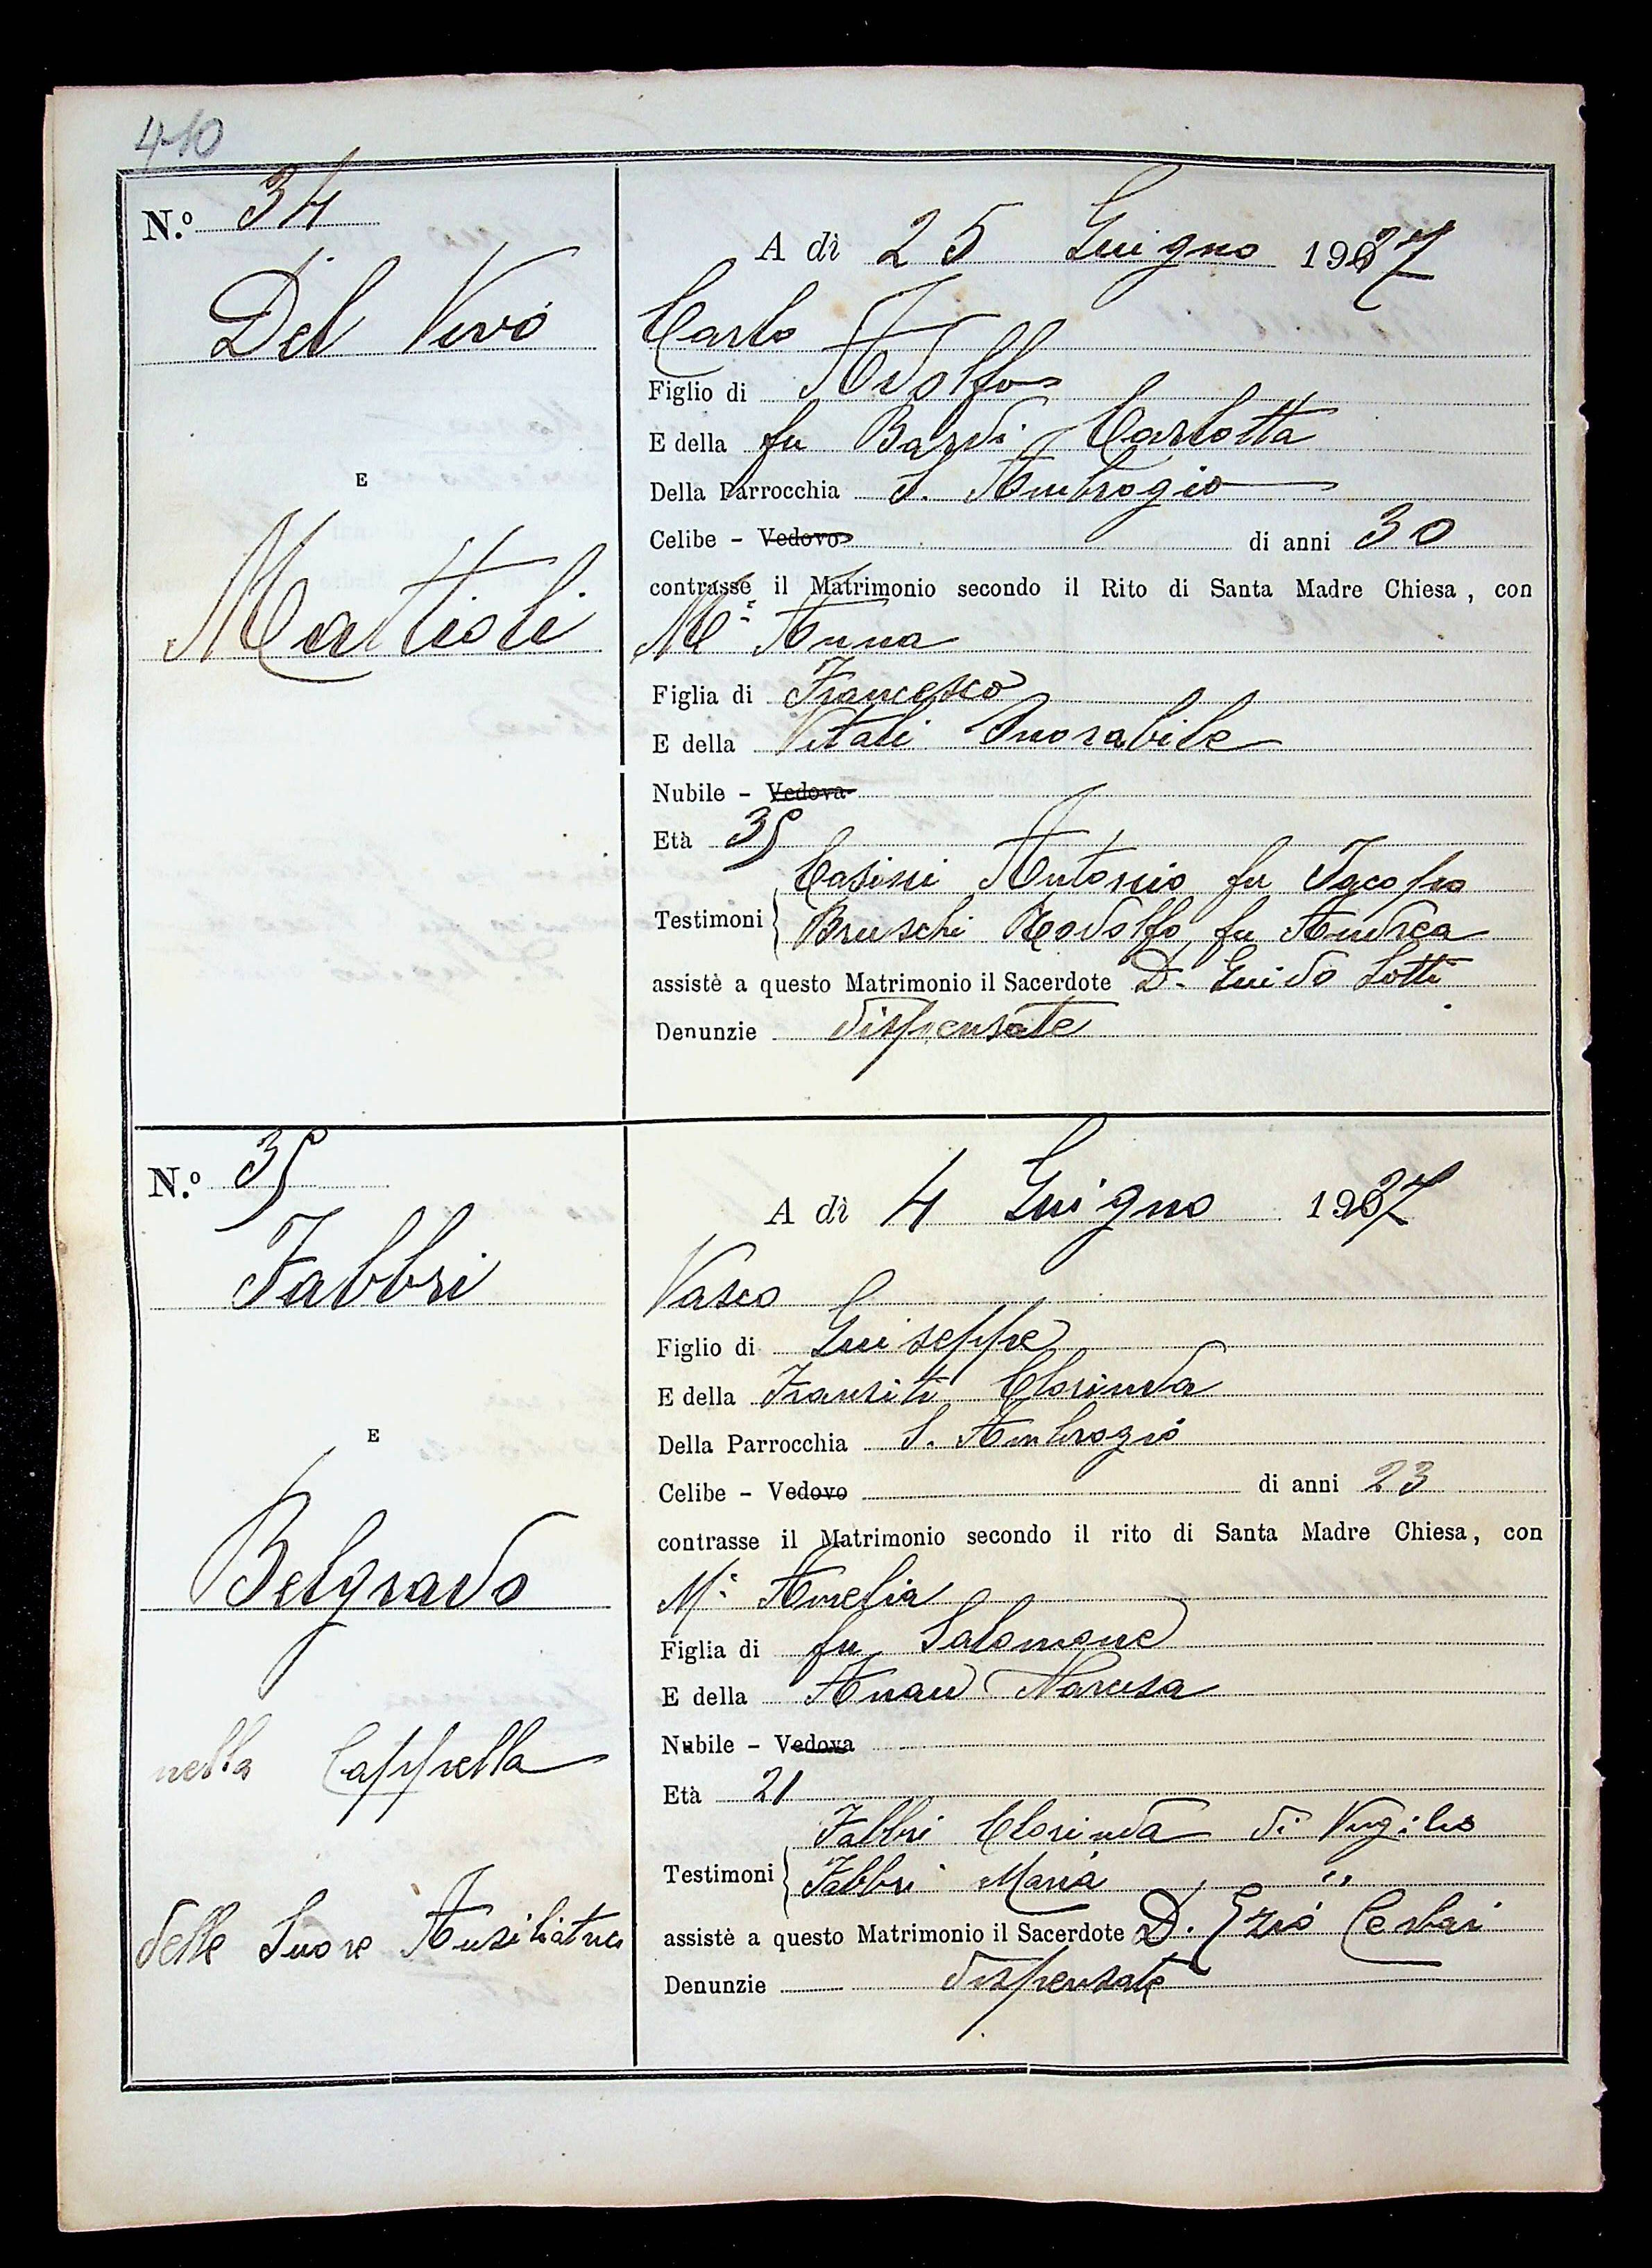 410
N.º 34
Del Vivo
E
Mattioli
A dì 25 Giugno 1937
Carlo
Figlio di Adolfo
E della fu Bardi Carlotta
Della Parrocchia S. Ambrogio
Celibe - Vedovo di anni 30
contrasse il Matrimonio secondo il Rito di Santa Madre Chiesa, con
Mª Anna
Figlia di Francesco
E della Vitali Onorabile
Nubile - Vedova
Età 35
Testimoni
Casini Antonio fu Jacopo
Bruschi Rodolfo fu Andrea
assistè a questo Matrimonio il Sacerdote D. Guido Lotti
Denunzie dispensate
N.º 35
Fabbri
E
Belgrado
nella Cappella
delle Suore Ausiliatrici
A dì 4 Giugno 1937
Vasco
Figlio di Giuseppe
E della Clorinda
Della Parrocchia S. Ambrogio
Celibe - Vedovo di anni 23
contrasse il Matrimonio secondo il rito di Santa Madre Chiesa, con
Mª Amelia
Figlia di fu Salomone
E della Anau Narcisa
Nubile - Vedova
Età 21
Testimoni
Fabbri Clorinda di Virgilio
Fabbri Maria "
assistè a questo Matrimonio il Sacerdote D. Ezio Cerbai
Denunzie dispensate